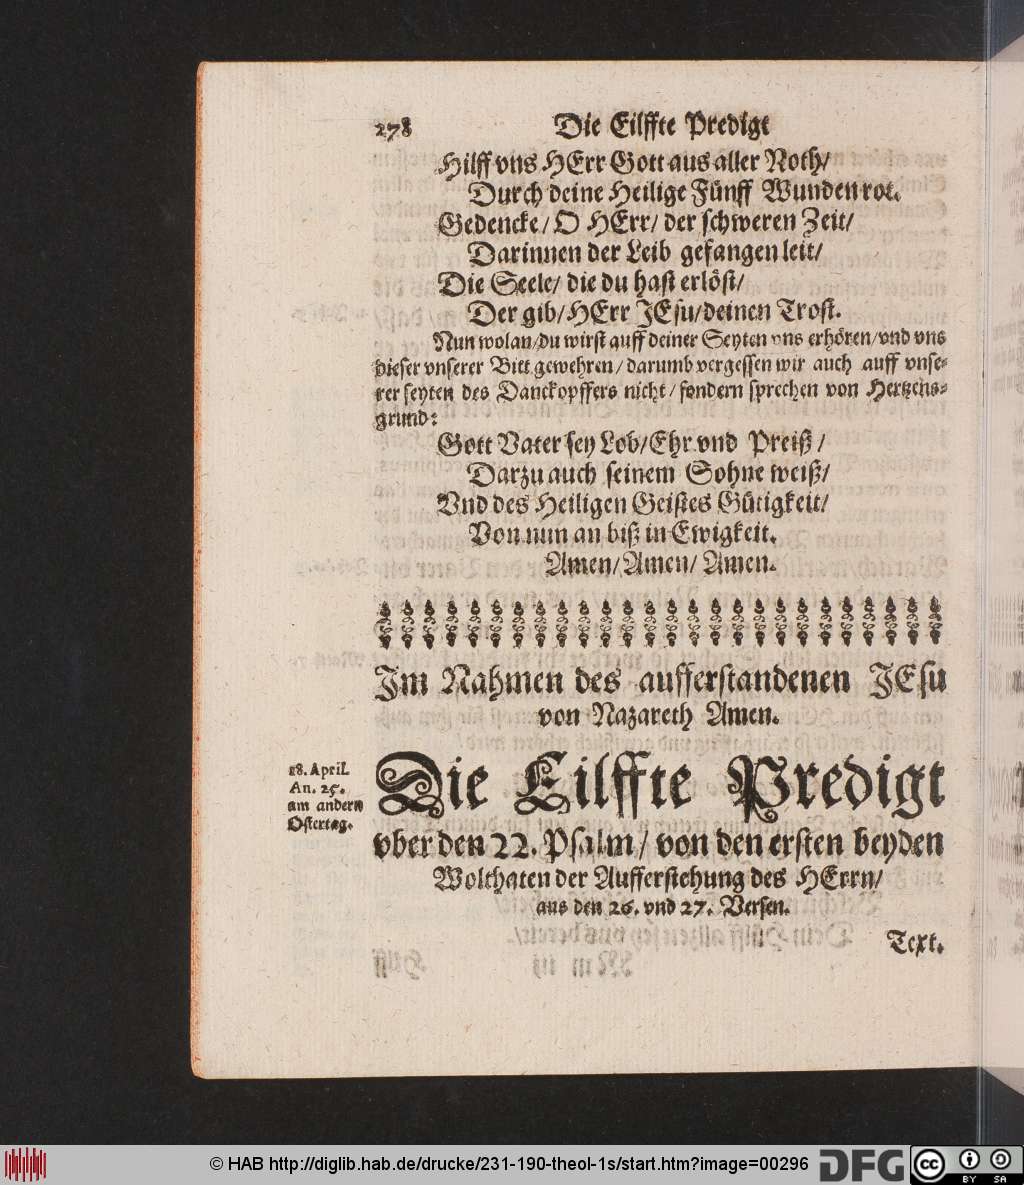 278 Die Eilffte Predigt
Hilff vns HErr Gott aus aller Noth/
Durch deine Heilige Fünff Wunden rot.
Gedencke/ O HErr/ der schweren Zeit/
Darinnen der Leib gefangen leit/
Die Seele/ die du hast erlöst/
Der gib/ HErr JEsu/ deinen Trost.
Nun wolan/ du wirst auff deiner Seyten vns erhören/ vnd vns
dieser vnserer Bitt gewehren/ darumb vergessen wir auch auff vnse-
rer seyten des Danckopffers nicht/ sondern sprechen von Hertzens-
grund:
Gott Vater sey Lob/ Ehr vnd Preiß/
Darzu auch seinem Sohne weiß/
Vnd des Heiligen Geistes Gütigkeit/
Von nun an biß in Ewigkeit.
Amen/ Amen/ Amen.
Im Nahmen des aufferstandenen JEsu
von Nazareth Amen.
18. April.
An. 25.
am andern
Ostertag.
Die Eilffte Predigt
vber den 22. Psalm/ von den ersten beyden
Wolthaten der Aufferstehung des HErrn/
aus den 26. vnd 27. Versen.
Text.
© HAB http://diglib.hab.de/drucke/231-190-theol-1s/start.htm?image=00296
DFG
cc BY SA